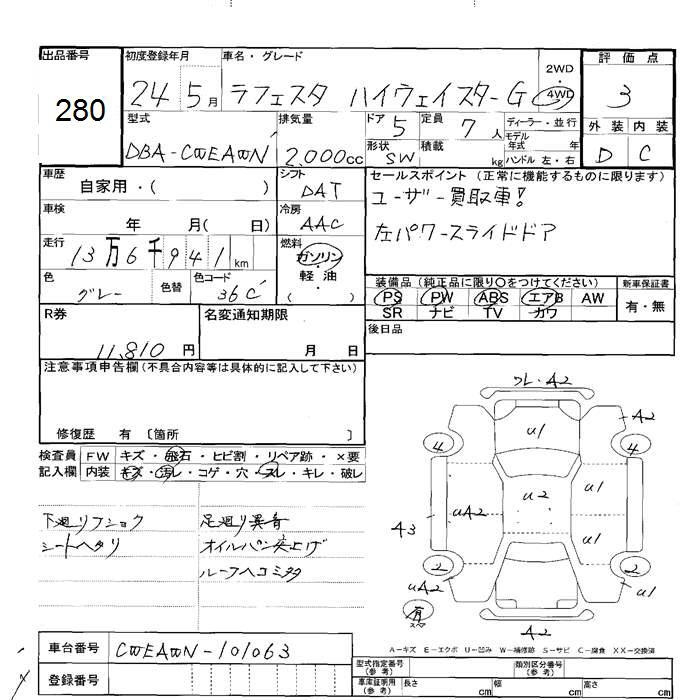 出品番号 初度登録年月 車名・グレード 2WD・4WD 評価点
280 24 5月 ラフェスタ ハイウェイスターG 3
型式 排気量 ドア 5 定員 7人 ディーラー・並行 外装 内装
モデル年式 年
DBA-CWEAWN 2,000cc 形状 SW 積載 kg ハンドル 左・右 D C
車歴 自家用・( ) シフト DAT セールスポイント (正常に機能するものに限ります)
ユーザー買取車!
車検 年 月( 日) 冷房 AAC 左パワースライドドア
走行 13万6千941km 燃料 ガソリン・軽油 ( )
色 グレー 色替 色コード 36C
装備品 (純正品に限り〇をつけてください) 新車保証書
PS PW ABS エアB AW 有・無
SR ナビ TV カワ
R券 11,810円 名変通知期限 月 日 後日品
注意事項申告欄 (不具合内容等は具体的に記入して下さい)
修復歴 有 〔箇所 〕
検査員記入欄 FW キズ・飛石・ヒビ割・リペア跡・×要
内装 キズ・汚レ・コゲ・穴・スレ・キレ・破レ
下廻りフショク 足廻り異音
シートヘタリ オイルパン突上げ
ルーフヘコミ多タ
フレ・A2
A2
U1
4 4
UA2 U2 U1
A3 U1
2 2
UA2 U1
有 スペア
A2
A-キズ E-エクボ U-凹み W-補修跡 S-サビ C-腐食 XX-交換済
車台番号 CWEAWN-101063
登録番号
型式指定番号(参考) 類別区分番号(参考)
車庫証明用(参考) 長さ cm 幅 cm 高さ cm